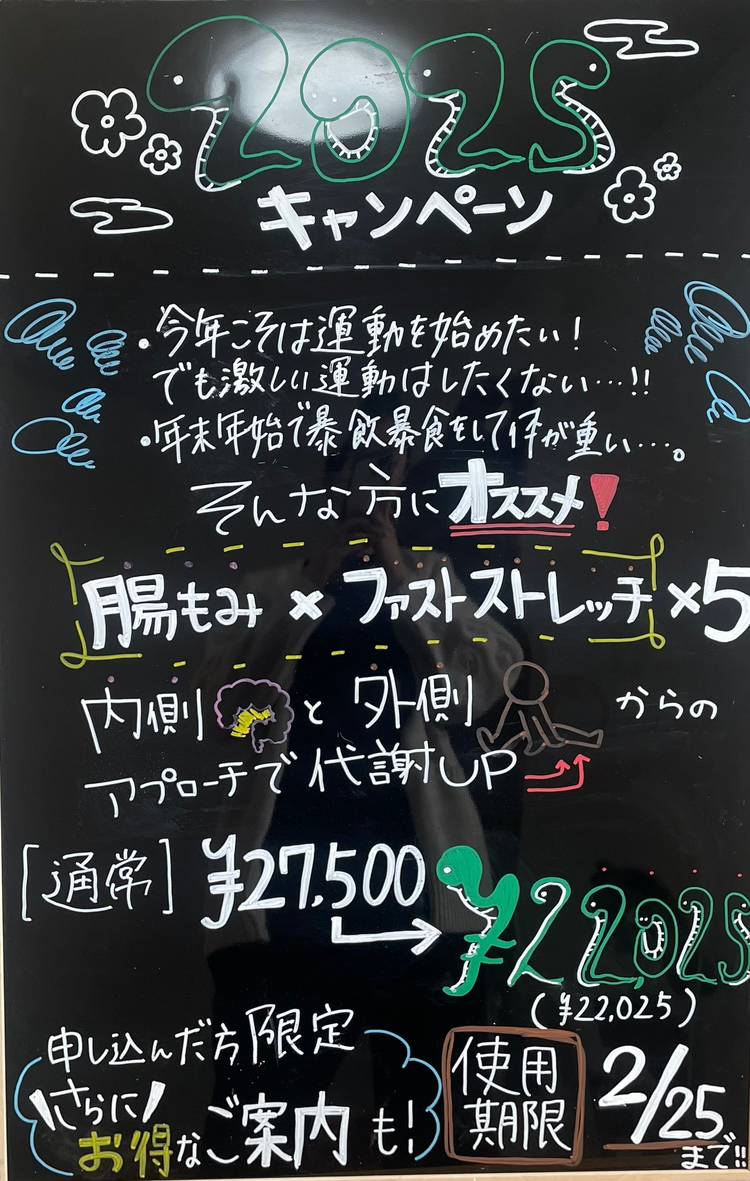 2025
キャンペーン
・今年こそは運動を始めたい!
でも激しい運動はしたくない…!!
・年末年始で暴飲暴食をして体が重い…。
そんな方にオススメ!
腸もみ × ファストストレッチ ×5
内側と外側からの
アプローチで代謝UP
[通常] ¥27,500
¥22,025
(¥22,025)
申し込んだ方限定
さらに
お得なご案内も!
使用
期限
2/25
まで!!